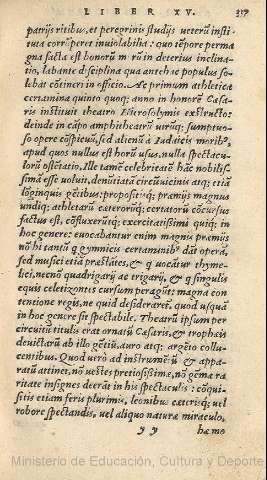 LIBER XV. 357
patrijs ritibus, et peregrinis studijs ueterũ insti
tuta corrũperet inuiolabilia: quo tẽpore perma
gna facta est honorũ m rũ in deterius inclina-
tio, labante disciplina qua antehac populus so-
lebat cõtineri in officio. Ac primum athletica
certamina quinto quoq; anno in honorẽ Cæsa
ris instituit theatro Hierosolymis exstructo:
deinde in cãpo amphitheatrũ urũq; sumptuo-
so opere cõspicuũ, sed alienũ à Iudaicis moribꝰ,
apud quos nullus est horũ usus, nulla spectacu-
lorũ ostẽtatio. Ille tamẽ celebritatẽ hãc nobilis-
simã esse uoluit, denũtiatã circũuicinis atq; etiã
lõginquis gẽtibus: propositisq; præmijs magnis
undiq; athletarũ cæterorũq; certatorũ cõcursus
factus est, cõfluxerũtq; exercitatißimi quiq; in
hoc genere: euocabantur enim magnis præmijs
nõ hi tantũ q gymnicis certaminibꝰ dãt operã,
sed musici etiã præstãtes, & q uocãtur thyme-
lici, necnõ quadrigarij ac trigarij, & q singulis
equis celetizontes cursum peragũt: magna con
tentione regis, ne quid desideraret, quod usquã
in hoc genere sit spectabile. Theatrũ ipsum per
circuitũ titulis erat ornatũ Cæsaris, & trophæis
deuictarũ ab illo gẽtiũ, auro atq; argẽto collu-
centibus. Quod uerò ad instrumẽtũ & appa-
ratũ attinet, nõ uestes pretiosißimæ, nõ gẽmæ ra
ritate insignes deerãt in his spectaculis: cõqui-
sitis etiam feris plurimis, leonibus cæterisq; uel
robore spectandis, uel aliquo naturæ miraculo,
y y hæ mo
Ministerio de Educación, Cultura y Deporte